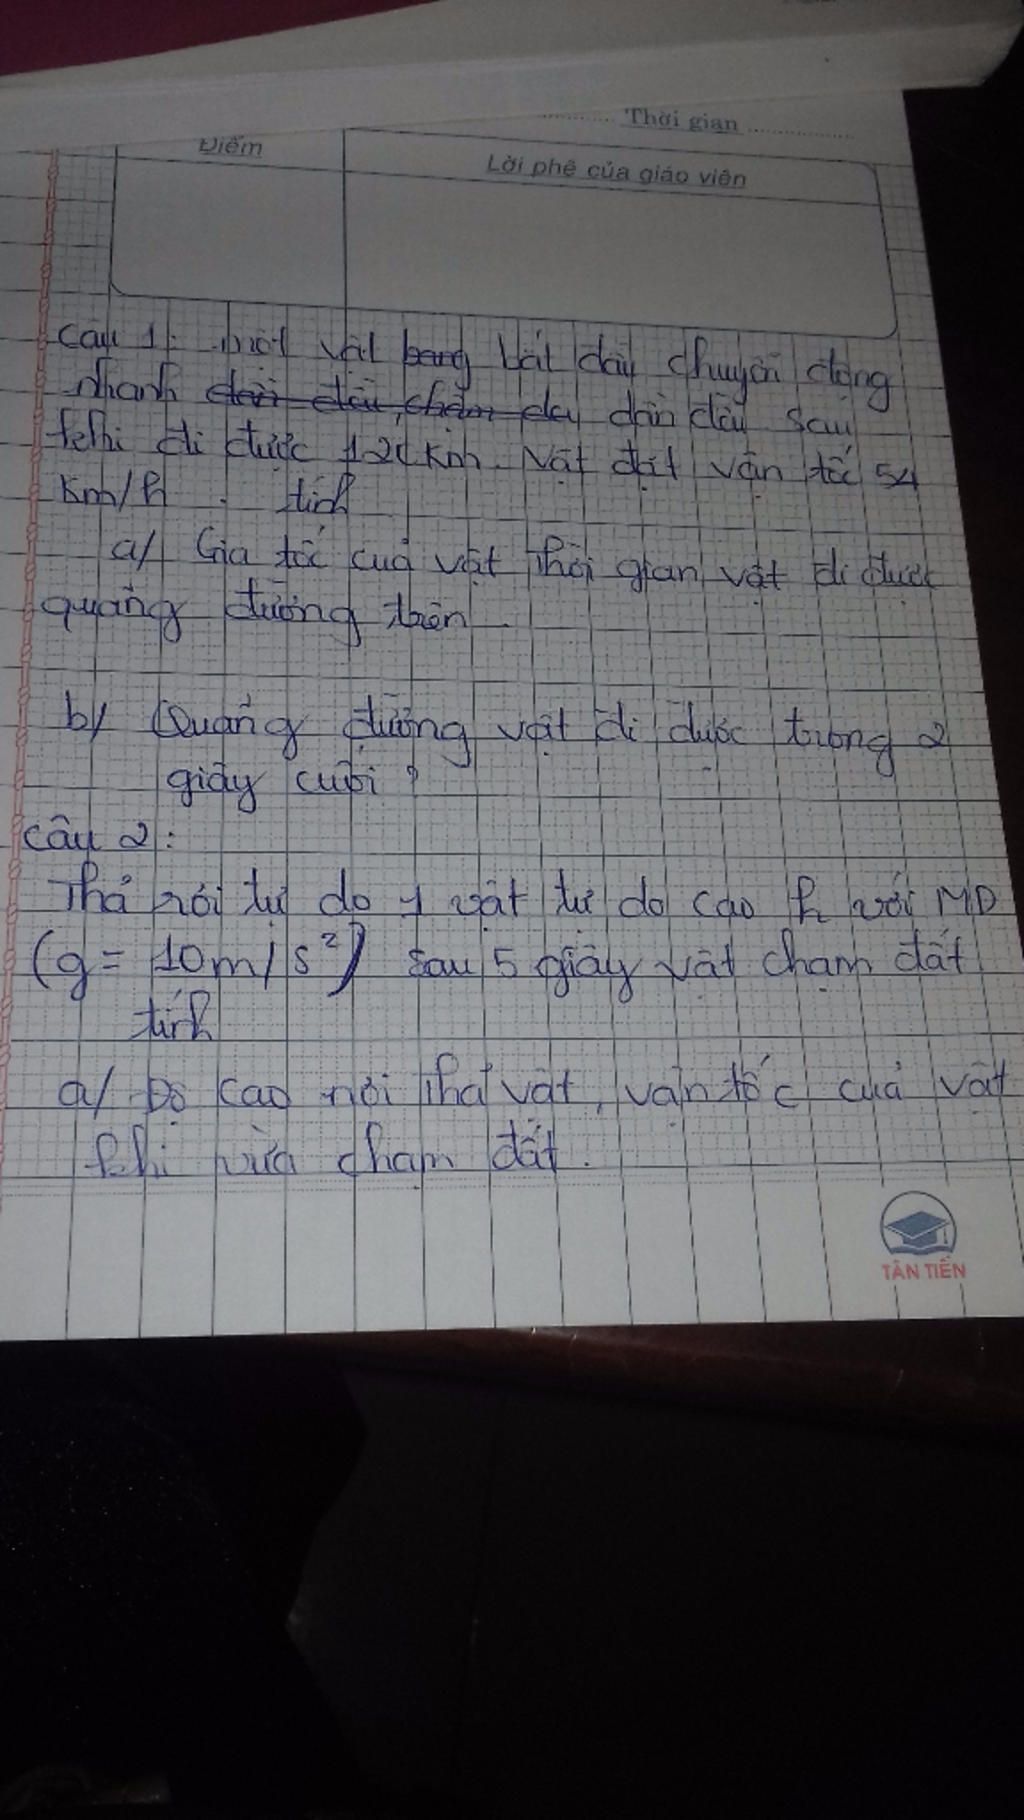 Thời gian
Điểm
Lời phê của giáo viên
Câu 1: một vật bắt đầu chuyển động
nhanh dần đều sau
khi đi được Km. Vật đạt vận tốc 54
Km/h. tính
a/ Gia tốc của vật thời gian vật đi được
quảng đường trên
b/ Quảng đường vật đi được trong 2
giây cuối?
câu 2:
Thả rơi tự do 1 vật từ độ cao h với MĐ
(g = 10m/s²) sau 5 giây vật chạm đất
tính
a/ Độ cao nơi thả vật, vận tốc của vật
khi vừa chạm đất.
TÂN TIẾN